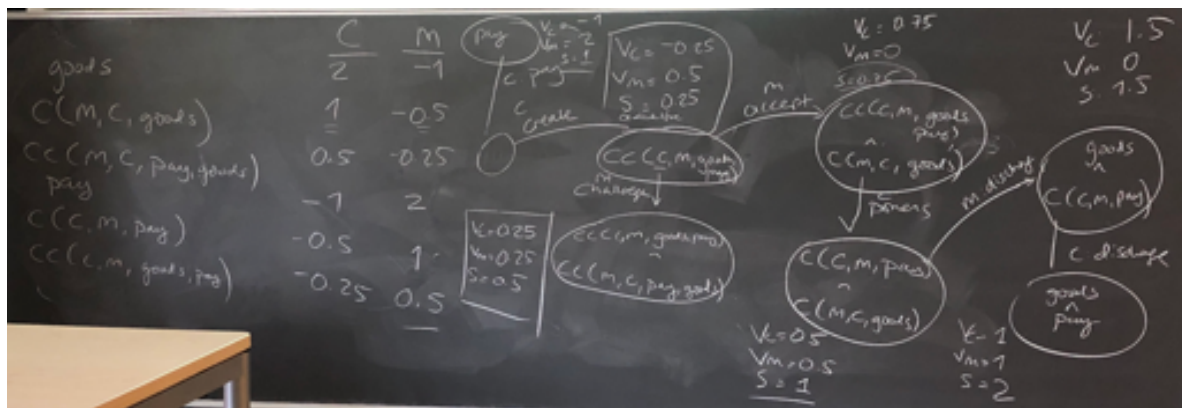 C M
goods 2 -1
C(M, C, goods) 1 -0.5
CC(M, C, pay, goods) 0.5 -0.25
pay -1 2
C(C, M, pay) -0.5 1
CC(C, M, goods, pay) -0.25 0.5
pay
Vc = -1
Vm = 2
S = 1
c pay
c
create
Vc = -0.25
Vm = 0.5
S = 0.25
CC(C, M, goods,
pay)
m
accept
Challenge
Vc = 0.25
Vm = 0.25
S = 0.5
CC(C, M, goods, pay)
^
CC(M, C, pay, goods)
Vc = 0.75
Vm = 0
CC(C, M, goods
pay)
^
C(M, C, goods)
C(C, M, pay)
^
C(M, C, goods)
Vc = 0.5
Vm = 0.5
S = 1
m. discharge
Vc 1.5
Vm 0
S. 1.5
goods
^
C(C, M, pay)
c discharge
goods
^
pay
Vc = 1
Vm = 1
S = 2